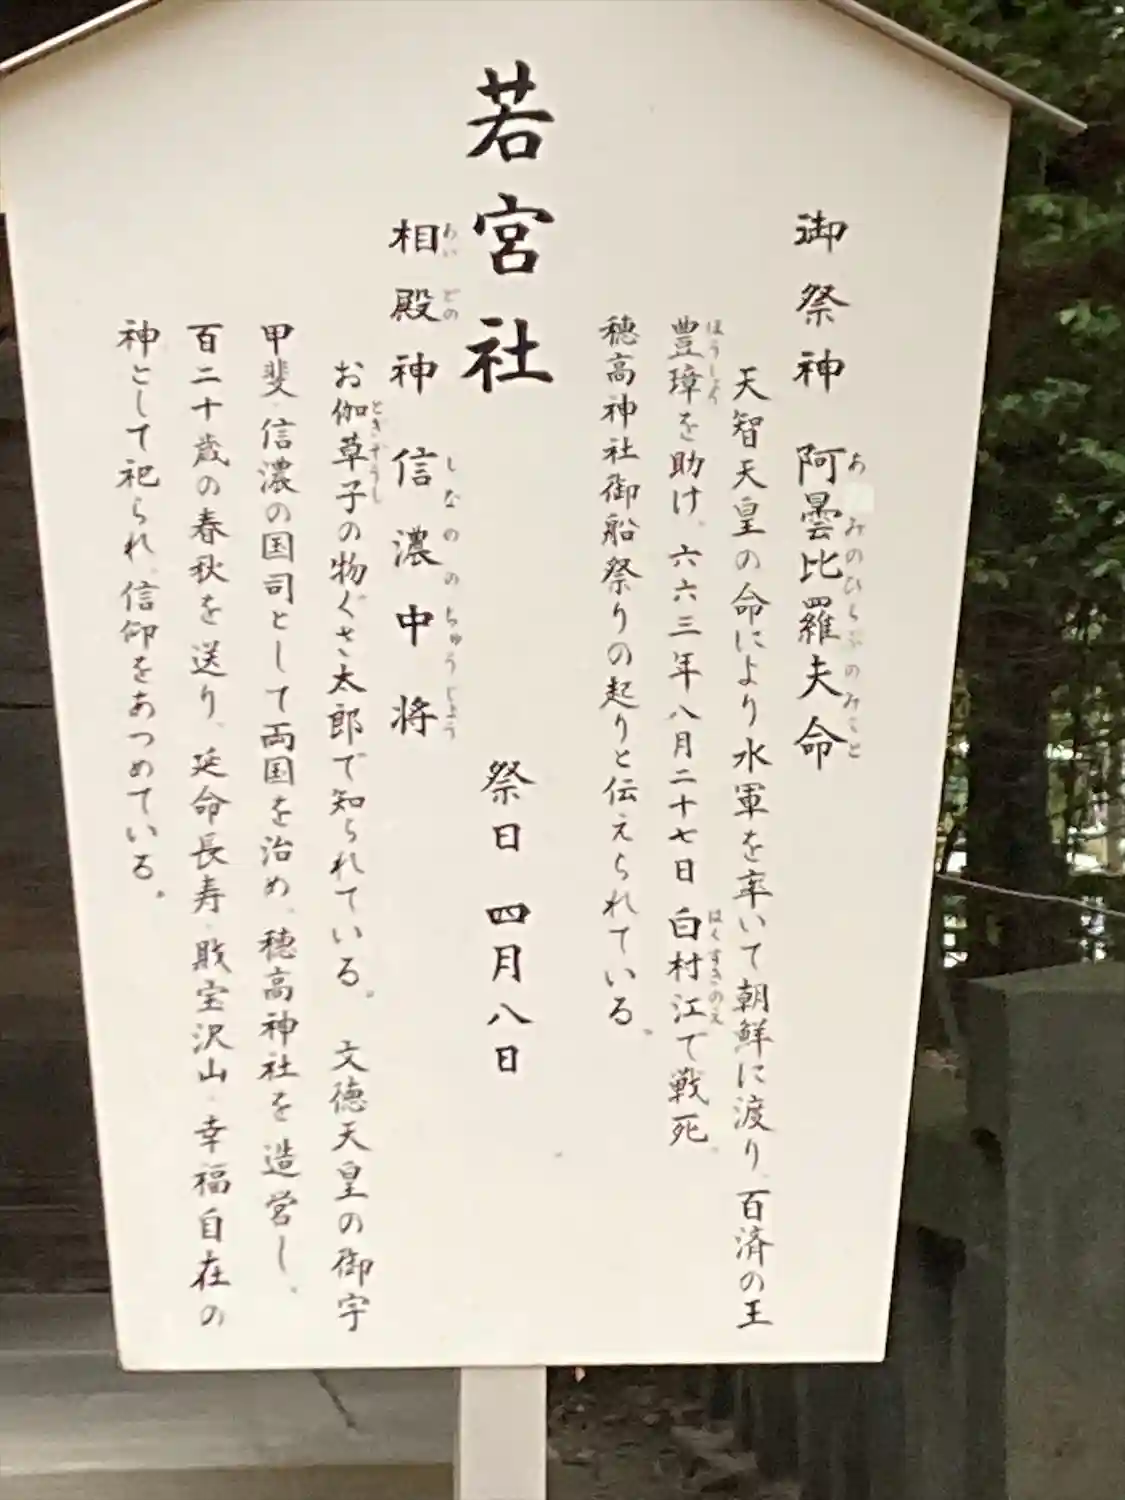 御祭神 阿曇比羅夫命
天智天皇の命により水軍を率いて朝鮮に渡り、百済の王
豊璋を助け、六六三年八月二十七日白村江で戦死。
穂高神社御船祭りの起りと伝えられている。
若宮社
祭日 四月八日
相殿神 信濃中将
お伽草子の物ぐさ太郎で知られている。文徳天皇の御宇
甲斐・信濃の国司として両国を治め、穂高神社を造営し、
百二十歳の春秋を送り、延命長寿・財宝沢山・幸福自在の
神として祀られ、信仰をあつめている。